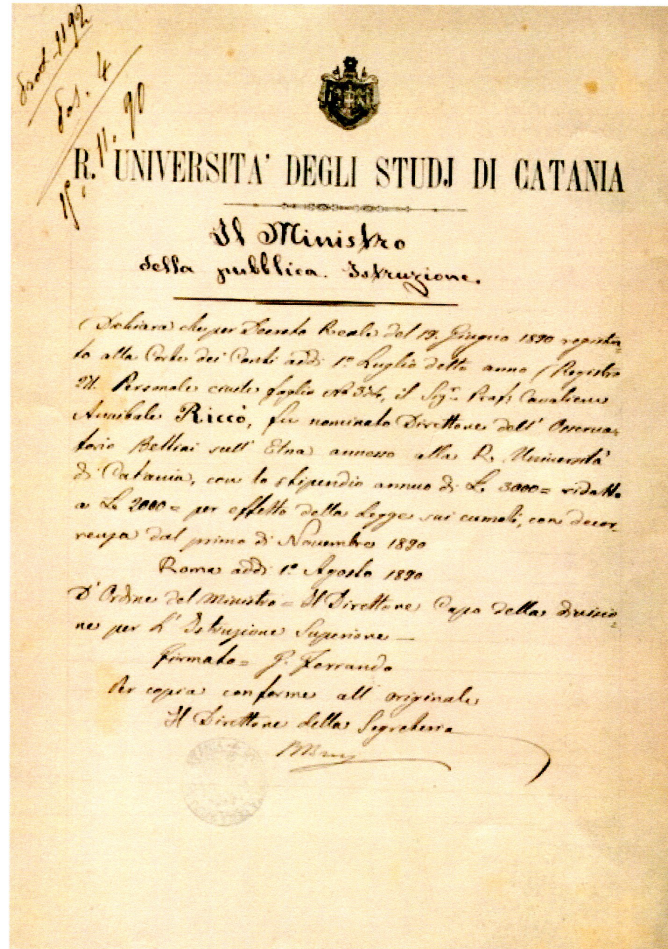 Pos. 4
11. 90
R. UNIVERSITA' DEGLI STUDJ DI CATANIA
Il Ministro
della pubblica Istruzione.
Dichiara che per Decreto Reale del 19. Giugno 1890 registra=
to alla Corte dei Conti addì 1º Luglio detto anno (Registro
Personale civile foglio Nº il Sigr. Prof. Cavaliere
Annibale Riccò, fu nominato Direttore dell' Osserva=
torio Bellini sull' Etna annesso alla R. Università
di Catania, con lo stipendio annuo di L. 3000= ridotto
a L. 2000= per effetto della Legge sui cumuli, con decor=
renza dal primo di Novembre 1890
Roma addì 1º Agosto 1890
D' Ordine del Ministro= Il Direttore Capo della divisio=
ne per l' Istruzione Superiore—
firmato= G. Ferrando
Per copia conforme all' originale
Il Direttore della Segreteria